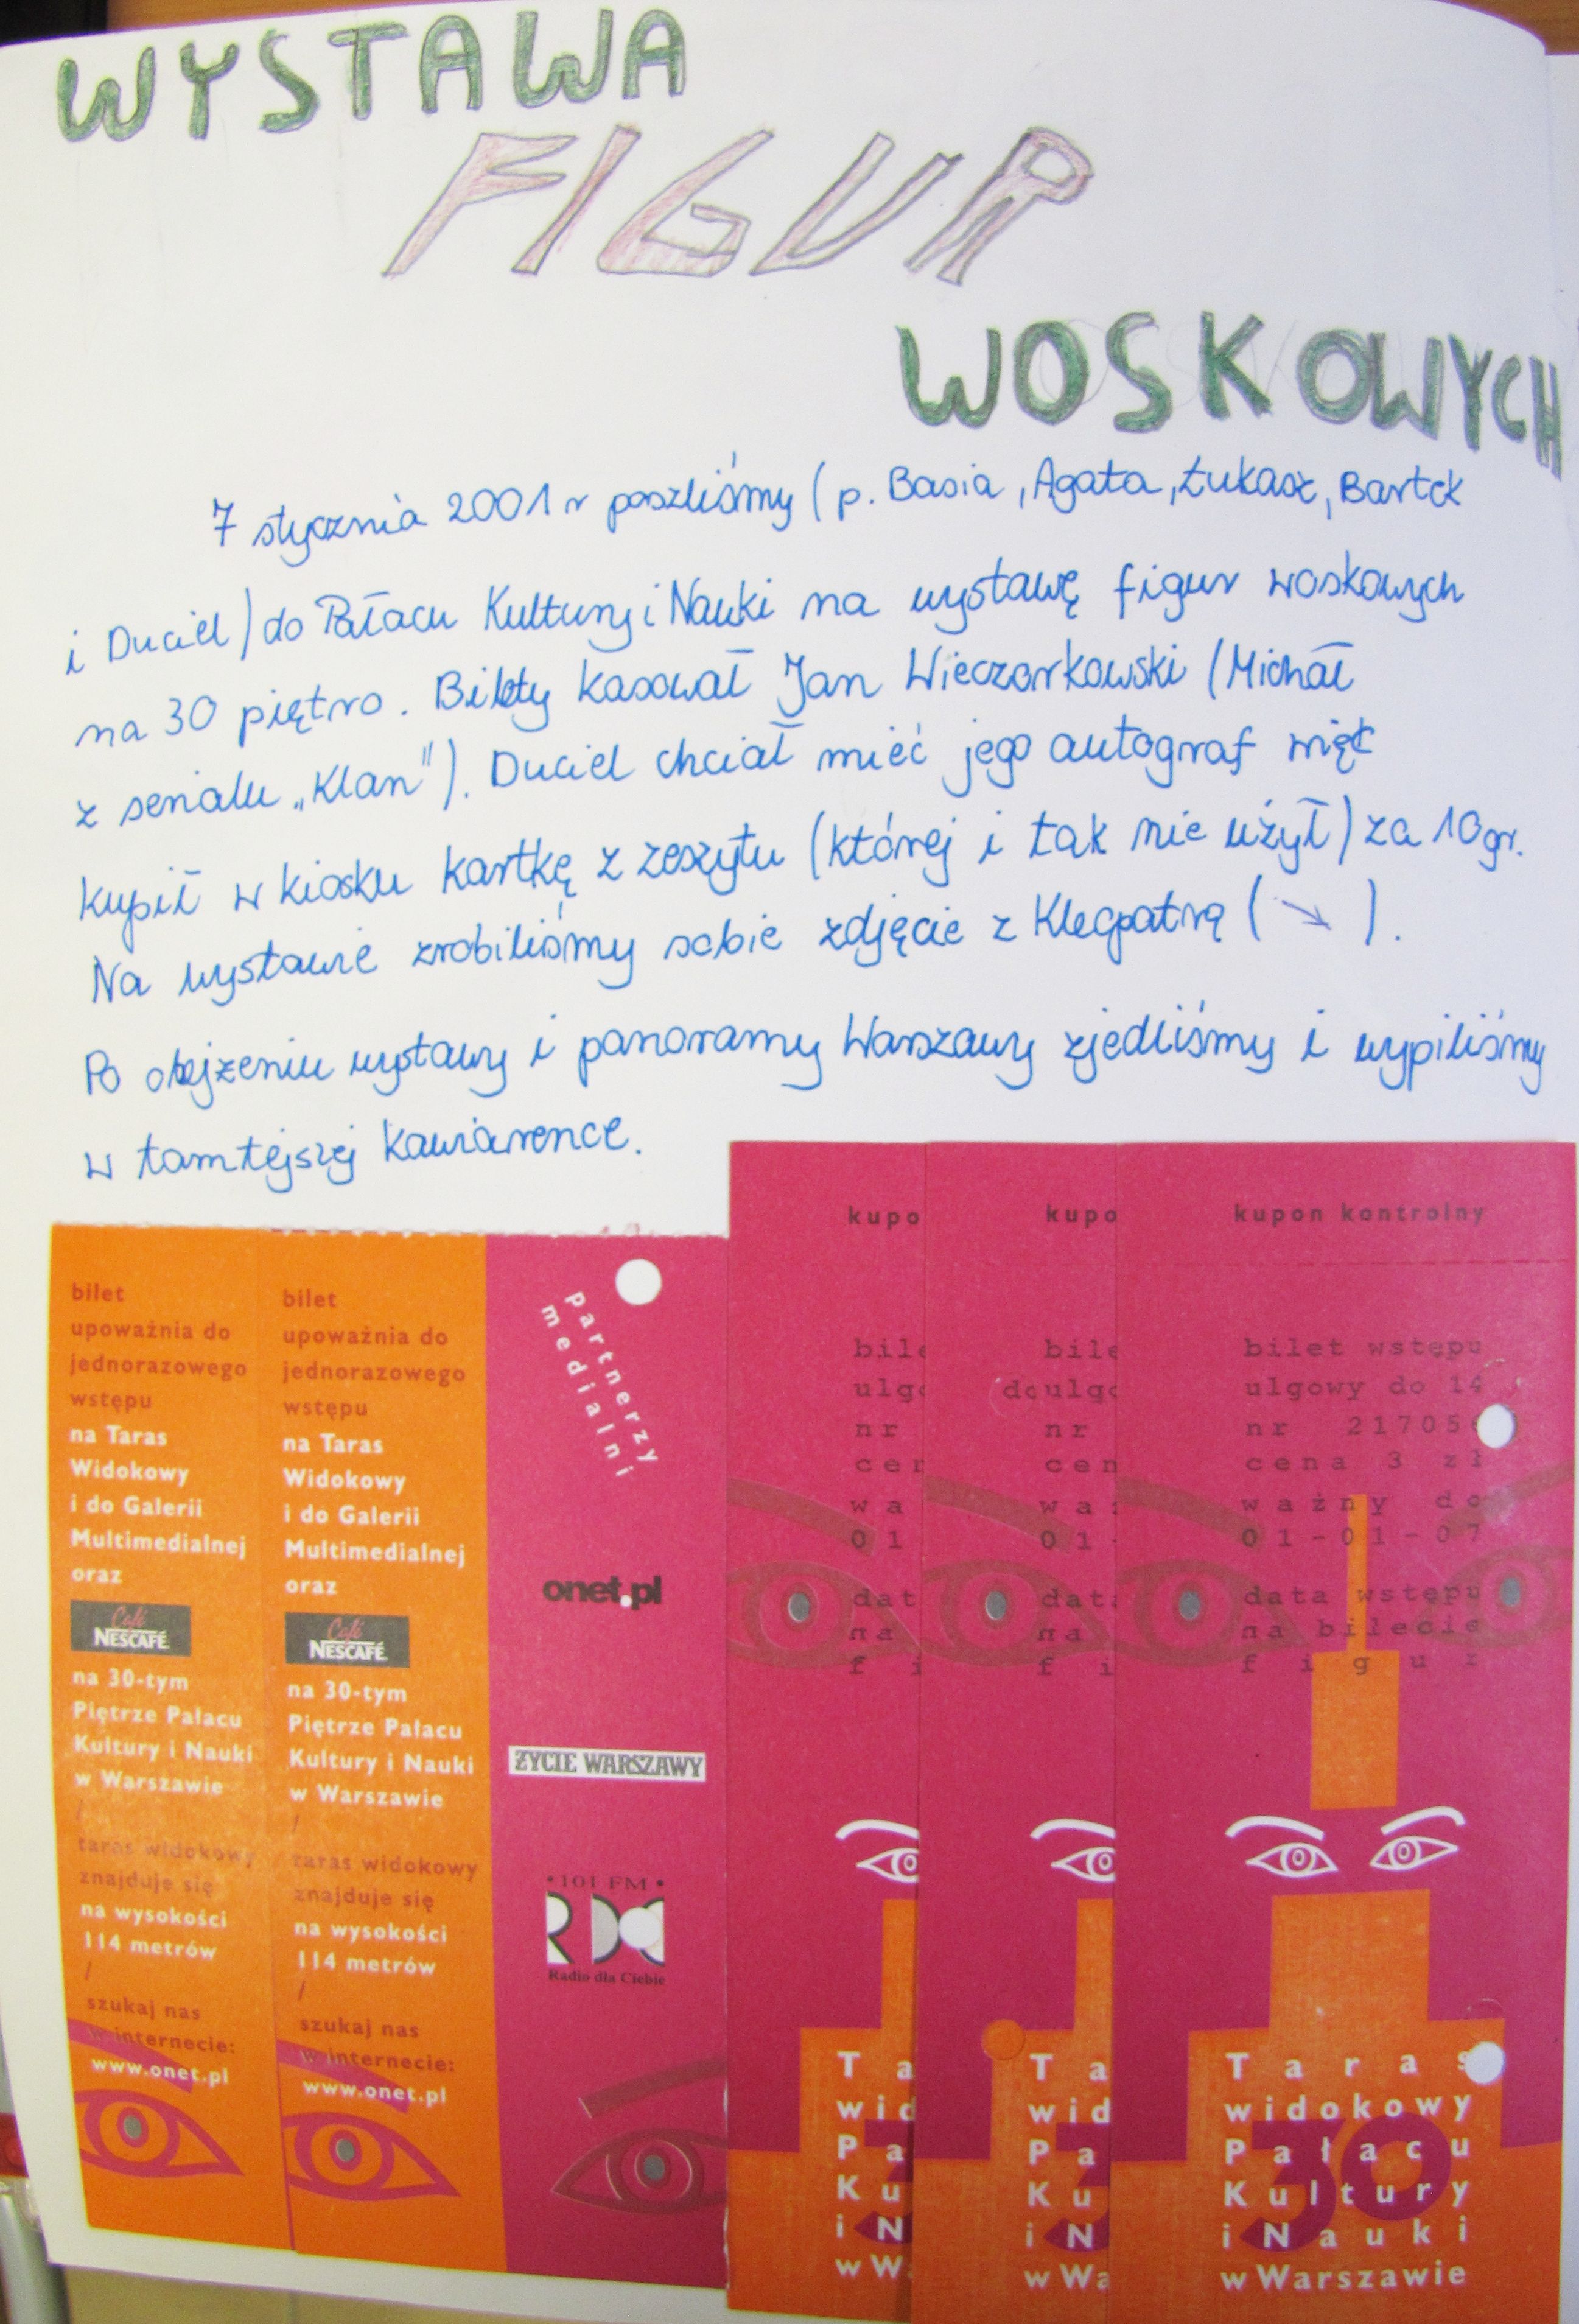 WYSTAWA
FIGUR
WOSKOWYCH
7 stycznia 2001 r poszliśmy (p. Basia, Agata, Łukasz, Bartek
i Duciel) do Pałacu Kultury i Nauki na wystawę figur woskowych
na 30 piętro. Bilety kasował Jan Wieczorkowski (Michał
z serialu „Klan"). Duciel chciał mieć jego autograf więc
kupił w kiosku kartkę z zeszytu (której i tak nie użył) za 10 gr.
Na wystawie zrobiliśmy sobie zdjęcie z Kleopatrą ( ↘ ).
Po obejżeniu wystawy i panoramy Warszawy zjedliśmy i wypiliśmy
w tamtejszej kawiarence.
bilet
upoważnia do
jednorazowego
wstępu
na Taras
Widokowy
i do Galerii
Multimedialnej
oraz
Café
NESCAFÉ
na 30-tym
Piętrze Pałacu
Kultury i Nauki
w Warszawie
/
taras widokowy
znajduje się
na wysokości
114 metrów
/
szukaj nas
w internecie:
www.onet.pl
bilet
upoważnia do
jednorazowego
wstępu
na Taras
Widokowy
i do Galerii
Multimedialnej
oraz
Café
NESCAFÉ
na 30-tym
Piętrze Pałacu
Kultury i Nauki
w Warszawie
/
taras widokowy
znajduje się
na wysokości
114 metrów
/
szukaj nas
w internecie:
www.onet.pl
partnerzy
medialni
onet.pl
ŻYCIE WARSZAWY
• 101 FM •
RDC
Radio dla Ciebie
kupo
bile
ulgo
nr
cen
wa
01
dat
na
fi
Ta
wid
Pa
Ku
i N
w W
kupo
bile
do ulgo
nr
cen
waż
01-
data
na
fi
Ta
wid
Pa
Ku
i N
w Wa
kupon kontrolny
bilet wstępu
ulgowy do 14
nr 21705
cena 3 zł
ważny do
01-01-07
data wstępu
na bilecie
figur
Taras
widokowy
Pałacu
Kultury
i Nauki
w Warszawie
30